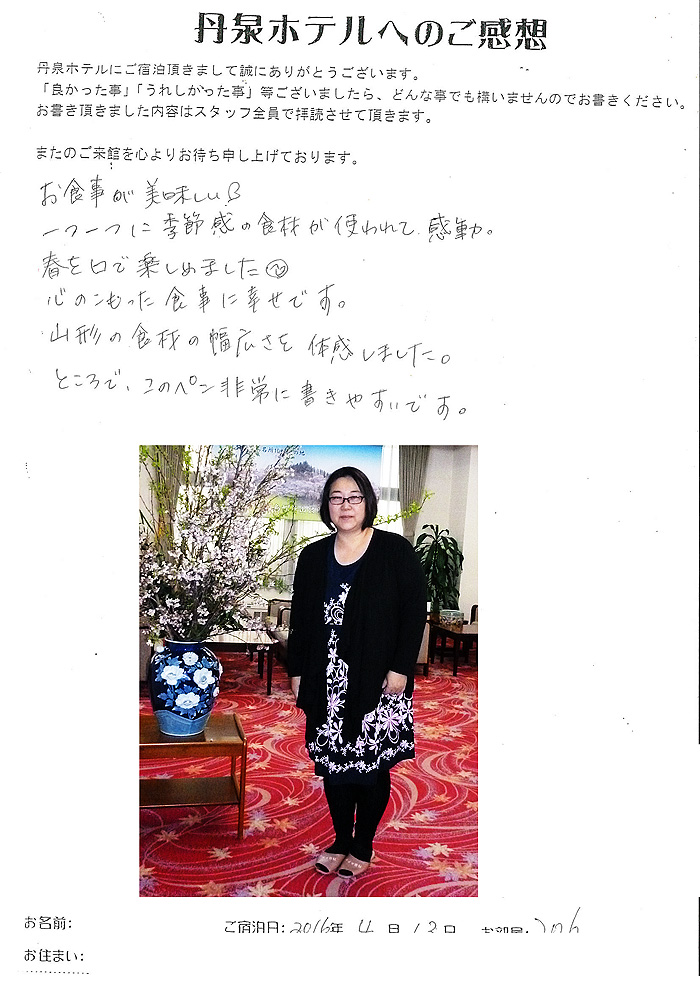 丹泉ホテルへのご感想
丹泉ホテルにご宿泊頂きまして誠にありがとうございます。
「良かった事」「うれしかった事」等ございましたら、どんな事でも構いませんのでお書きください。
お書き頂きました内容はスタッフ全員で拝読させて頂きます。
またのご来館を心よりお待ち申し上げております。
お食事が美味しい
一つ一つに季節感の食材が使われて感動。
春を口で楽しめました
心のこもった食事に幸せです。
山形の食材の幅広さを体感しました。
ところで、このペン非常に書きやすいです。
お名前:
ご宿泊日:2016年 4月12日 お部屋:
お住まい: